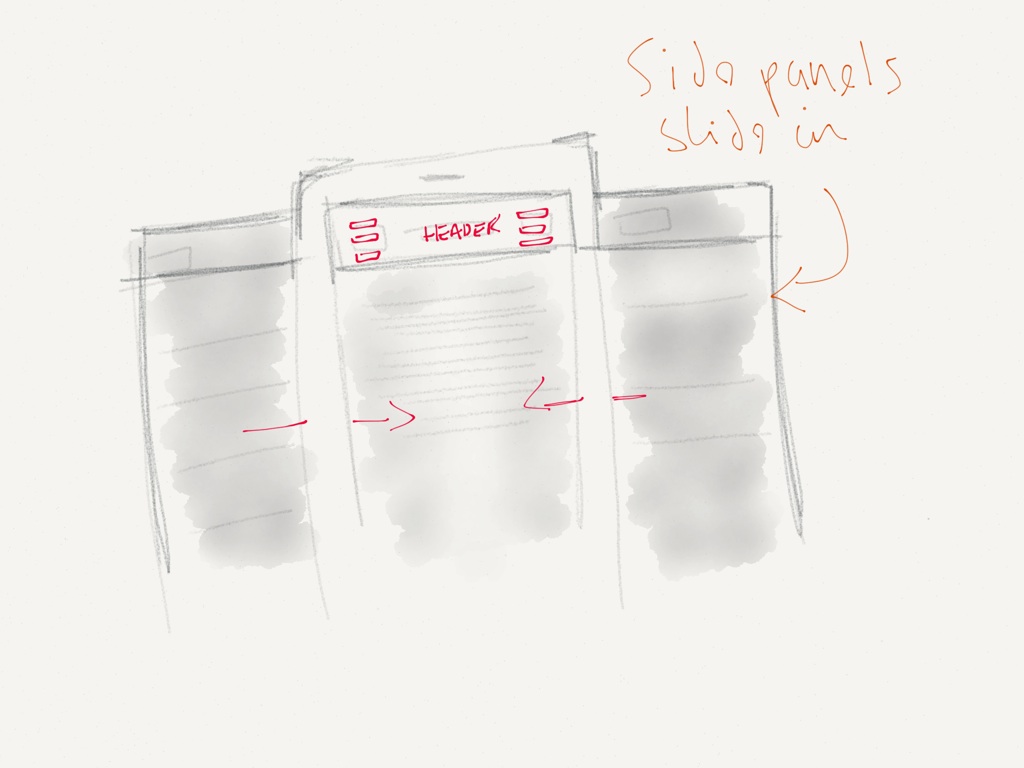 Side panels
slide in
HEADER